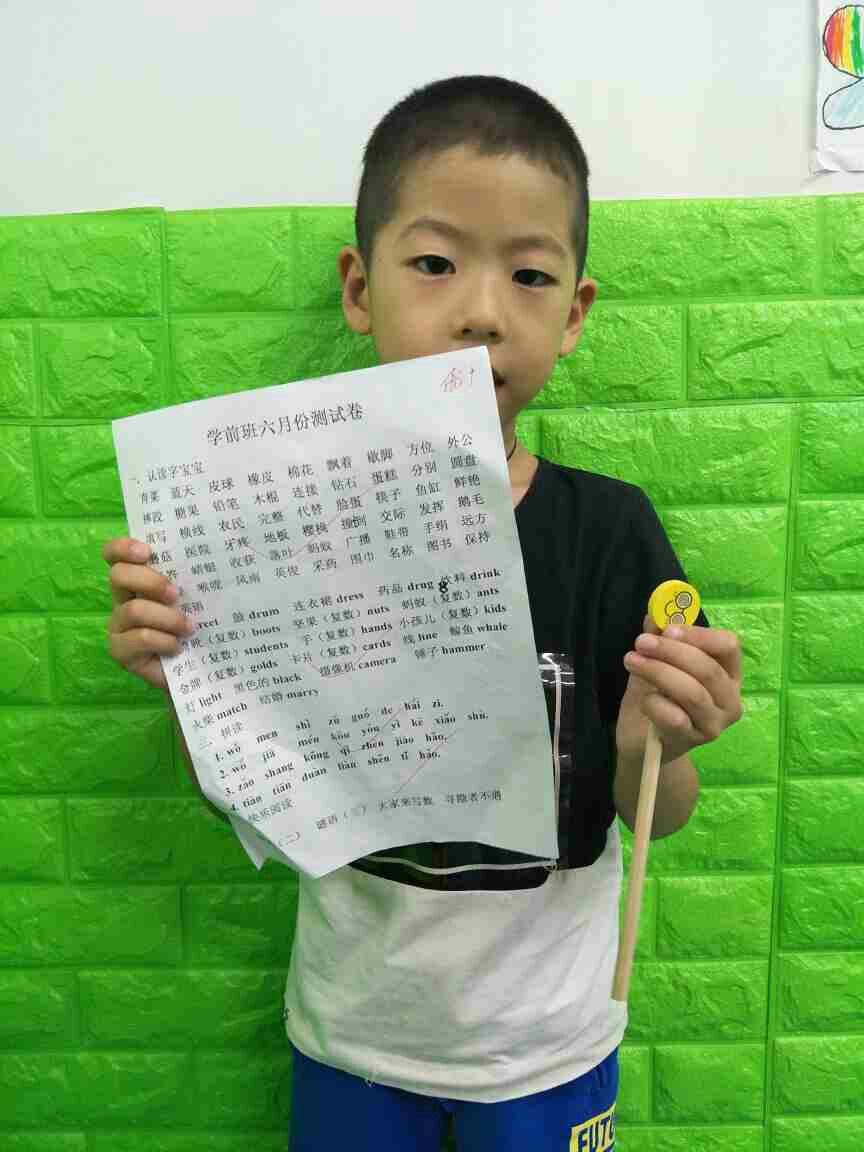 学前班六月份测试卷
一、认读字宝宝
青菜 蓝天 皮球 橡皮 棉花 飘着 歇脚 方位 外公
摔跤 糖果 铅笔 木棍 连接 钻石 蛋糕 分别 圆盘
填写 横线 农民 完整 代替 脸蛋 筷子 鱼缸 鲜艳
蘑菇 医院 牙疼 地板 樱桃 交际 发挥 鹅毛
蜻蜓 收获 落叶 蚂蚁 广播 鞋带 手绢 远方
喉咙 风雨 英俊 采药 围巾 名称 图书 保持
鼓 drum 连衣裙 dress 药品 drug 饮料 drink
(复数) boots 坚果(复数) nuts 蚂蚁(复数) ants
学生(复数) students 手(复数) hands 小孩儿(复数) kids
金牌(复数) golds 卡片(复数) cards 线 line 鲸鱼 whale
灯 light 黑色的 black 摄像机 camera 锤子 hammer
火柴 match 结婚 marry
三、拼读
1. wǒ men shì zǔ guó de hái zi.
2. wǒ jiā mén kǒu yǒu yì kē xiǎo shù.
3. zǎo shang kōng qì zhēn jiào hǎo.
4. tiān tiān duàn liàn shēn tǐ hǎo.
快乐阅读
(二) 谜语(三) 大家来写数 寻隐者不遇
FUTU